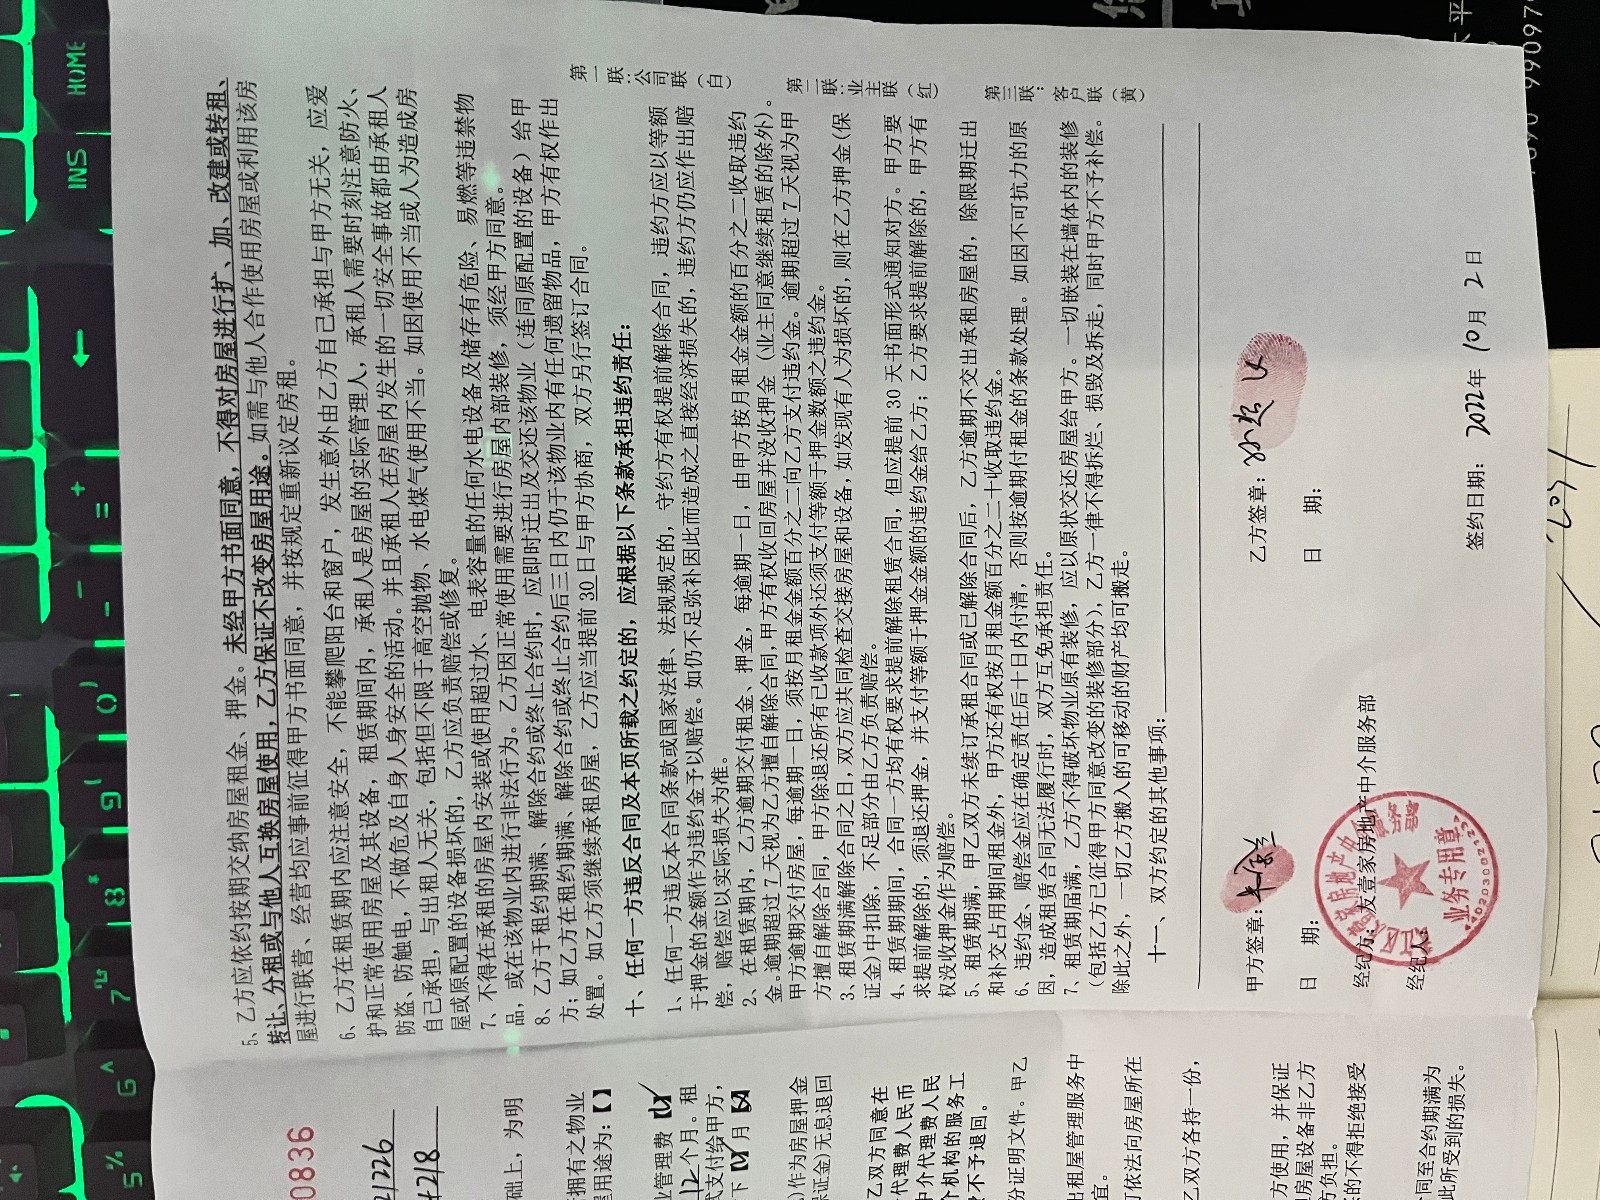 5、乙方应依约按期交纳房屋租金、押金。未经甲方书面同意，不得对房屋进行扩、加、改建或转租、
转让、分租或与他人互换房屋使用，乙方保证不改变房屋用途。如需与他人合作使用房屋或利用该房
屋进行联营、经营均应事前征得甲方书面同意，并按规定重新议定房租。
6、乙方在租赁期内应注意安全，不能攀爬阳台和窗户，发生意外由乙方自己承担与甲方无关，应爱
护和正常使用房屋及其设备，租赁期间内，承租人是房屋的实际管理人，承租人需要时刻注意防火、
防盗、防触电，不做危及自身人身安全的活动。并且承租人在房屋内发生的一切安全事故都由承租人
自己承担，与出租人无关，包括但不限于高空抛物、水电煤气使用不当。如因使用不当或人为造成房
屋或原配置的设备损坏的，乙方应负责赔偿或修复。
7、不得在承租的房屋内安装或使用超过水、电表容量的任何水电设备及储存有危险、易燃等违禁物
品，或在该物业内进行非法行为。乙方因正常使用需要进行房屋内部装修，须经甲方同意。
8、乙方于租约期满、解除合约或终止合约时，应即时迁出及交还该物业（连同原配置的设备）给甲
方；如乙方在租约期满、解除合约或终止合约后三日内仍于该物业内有任何遗留物品，甲方有权作出
处置。如乙方须继续承租房屋，乙方应当提前30日与甲方协商，双方另行签订合同。
十、任何一方违反合同及本页所载之约定的，应根据以下条款承担违约责任：
1、任何一方违反本合同条款或国家法律、法规规定的，守约方有权提前解除合同，违约方应以等额
于押金的金额作为违约金予以赔偿。如仍不足弥补因此而造成之直接经济损失的，违约方仍应作出赔
偿，赔偿应以实际损失为准。
2、在租赁期内，乙方逾期交付租金、押金，每逾期一日，由甲方按月租金金额的百分之二收取违约
金。逾期超过7天视为乙方擅自解除合同，甲方有权收回房屋并没收押金（业主同意继续租赁的除外）。
甲方逾期交付房屋，每逾期一日，须按月租金金额百分之二向乙方支付违约金。逾期超过7天视为甲
方擅自解除合同，甲方除退还所有已收款项外还须支付等额于押金数额之违约金。
3、租赁期满解除合同之日，双方应共同检查交接房屋和设备，如发现有人为损坏的，则在乙方押金（保
证金）中扣除，不足部分由乙方负责赔偿。
4、租赁期期间，合同一方均有权要求提前解除租赁合同，但应提前30天书面形式通知对方。甲方要
求提前解除的，须退还押金，并支付等额于押金金额的违约金给乙方；乙方要求提前解除的，甲方有
权没收押金作为赔偿。
5、租赁期满，甲乙双方未续订承租合同或已解除合同后，乙方逾期不交出承租房屋的，除限期迁出
和补交占用期间租金外，甲方还有权按月租金额百分之二十收取违约金。
6、违约金、赔偿金应在确定责任后十日内付清，否则按逾期付租金的条款处理。如因不可抗力的原
因，造成租赁合同无法履行时，双方互免承担责任。
7、租赁期届满，乙方不得破坏物业原有装修，应以原状交还房屋给甲方。一切嵌装在墙体内的装修
（包括乙方已征得甲方同意改变的装修部分），乙方一律不得拆烂、损毁及拆走，同时甲方不予补偿。
除此之外，一切乙方搬入的可移动的财产均可搬走。
十一、双方约定的其他事项：
甲方签章：
乙方签章：
日 期：
日 期：
经纪方：友壹家房地产中介服务部
经纪人：
签约日期：2022年10月2日
业务专用章
第一联：公司联（白）
第二联：业主联（红）
第三联：客户联（黄）
0836
础上，为明
拥有之物业
用途为：【】
业管理费【
12个月。租
式支付给甲方，
作为房屋押金
证金）无息退回
乙双方同意在
代理费人民币
中介代理费人民
机构的服务工
不予退回。
份证明文件。甲乙
出租屋管理服务中
可依法向房屋所在
乙双方各持一份，
方使用，并保证
房屋设备非乙方
方负担。
的不得拒绝接受
同至合约期满为
此所受到的损失。
HOME
INS